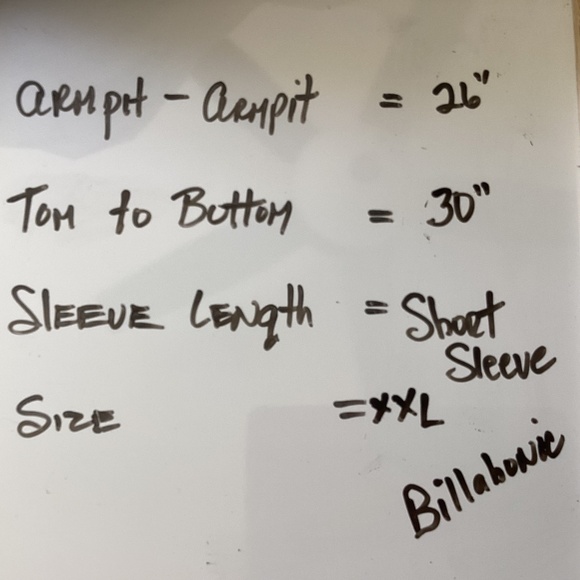 ARMPIT - ARMPIT = 26"
TOM to BOTTOM = 30"
SLEEVE LENgth = Short
Sleeve
SIZE = XXL
Billabonic